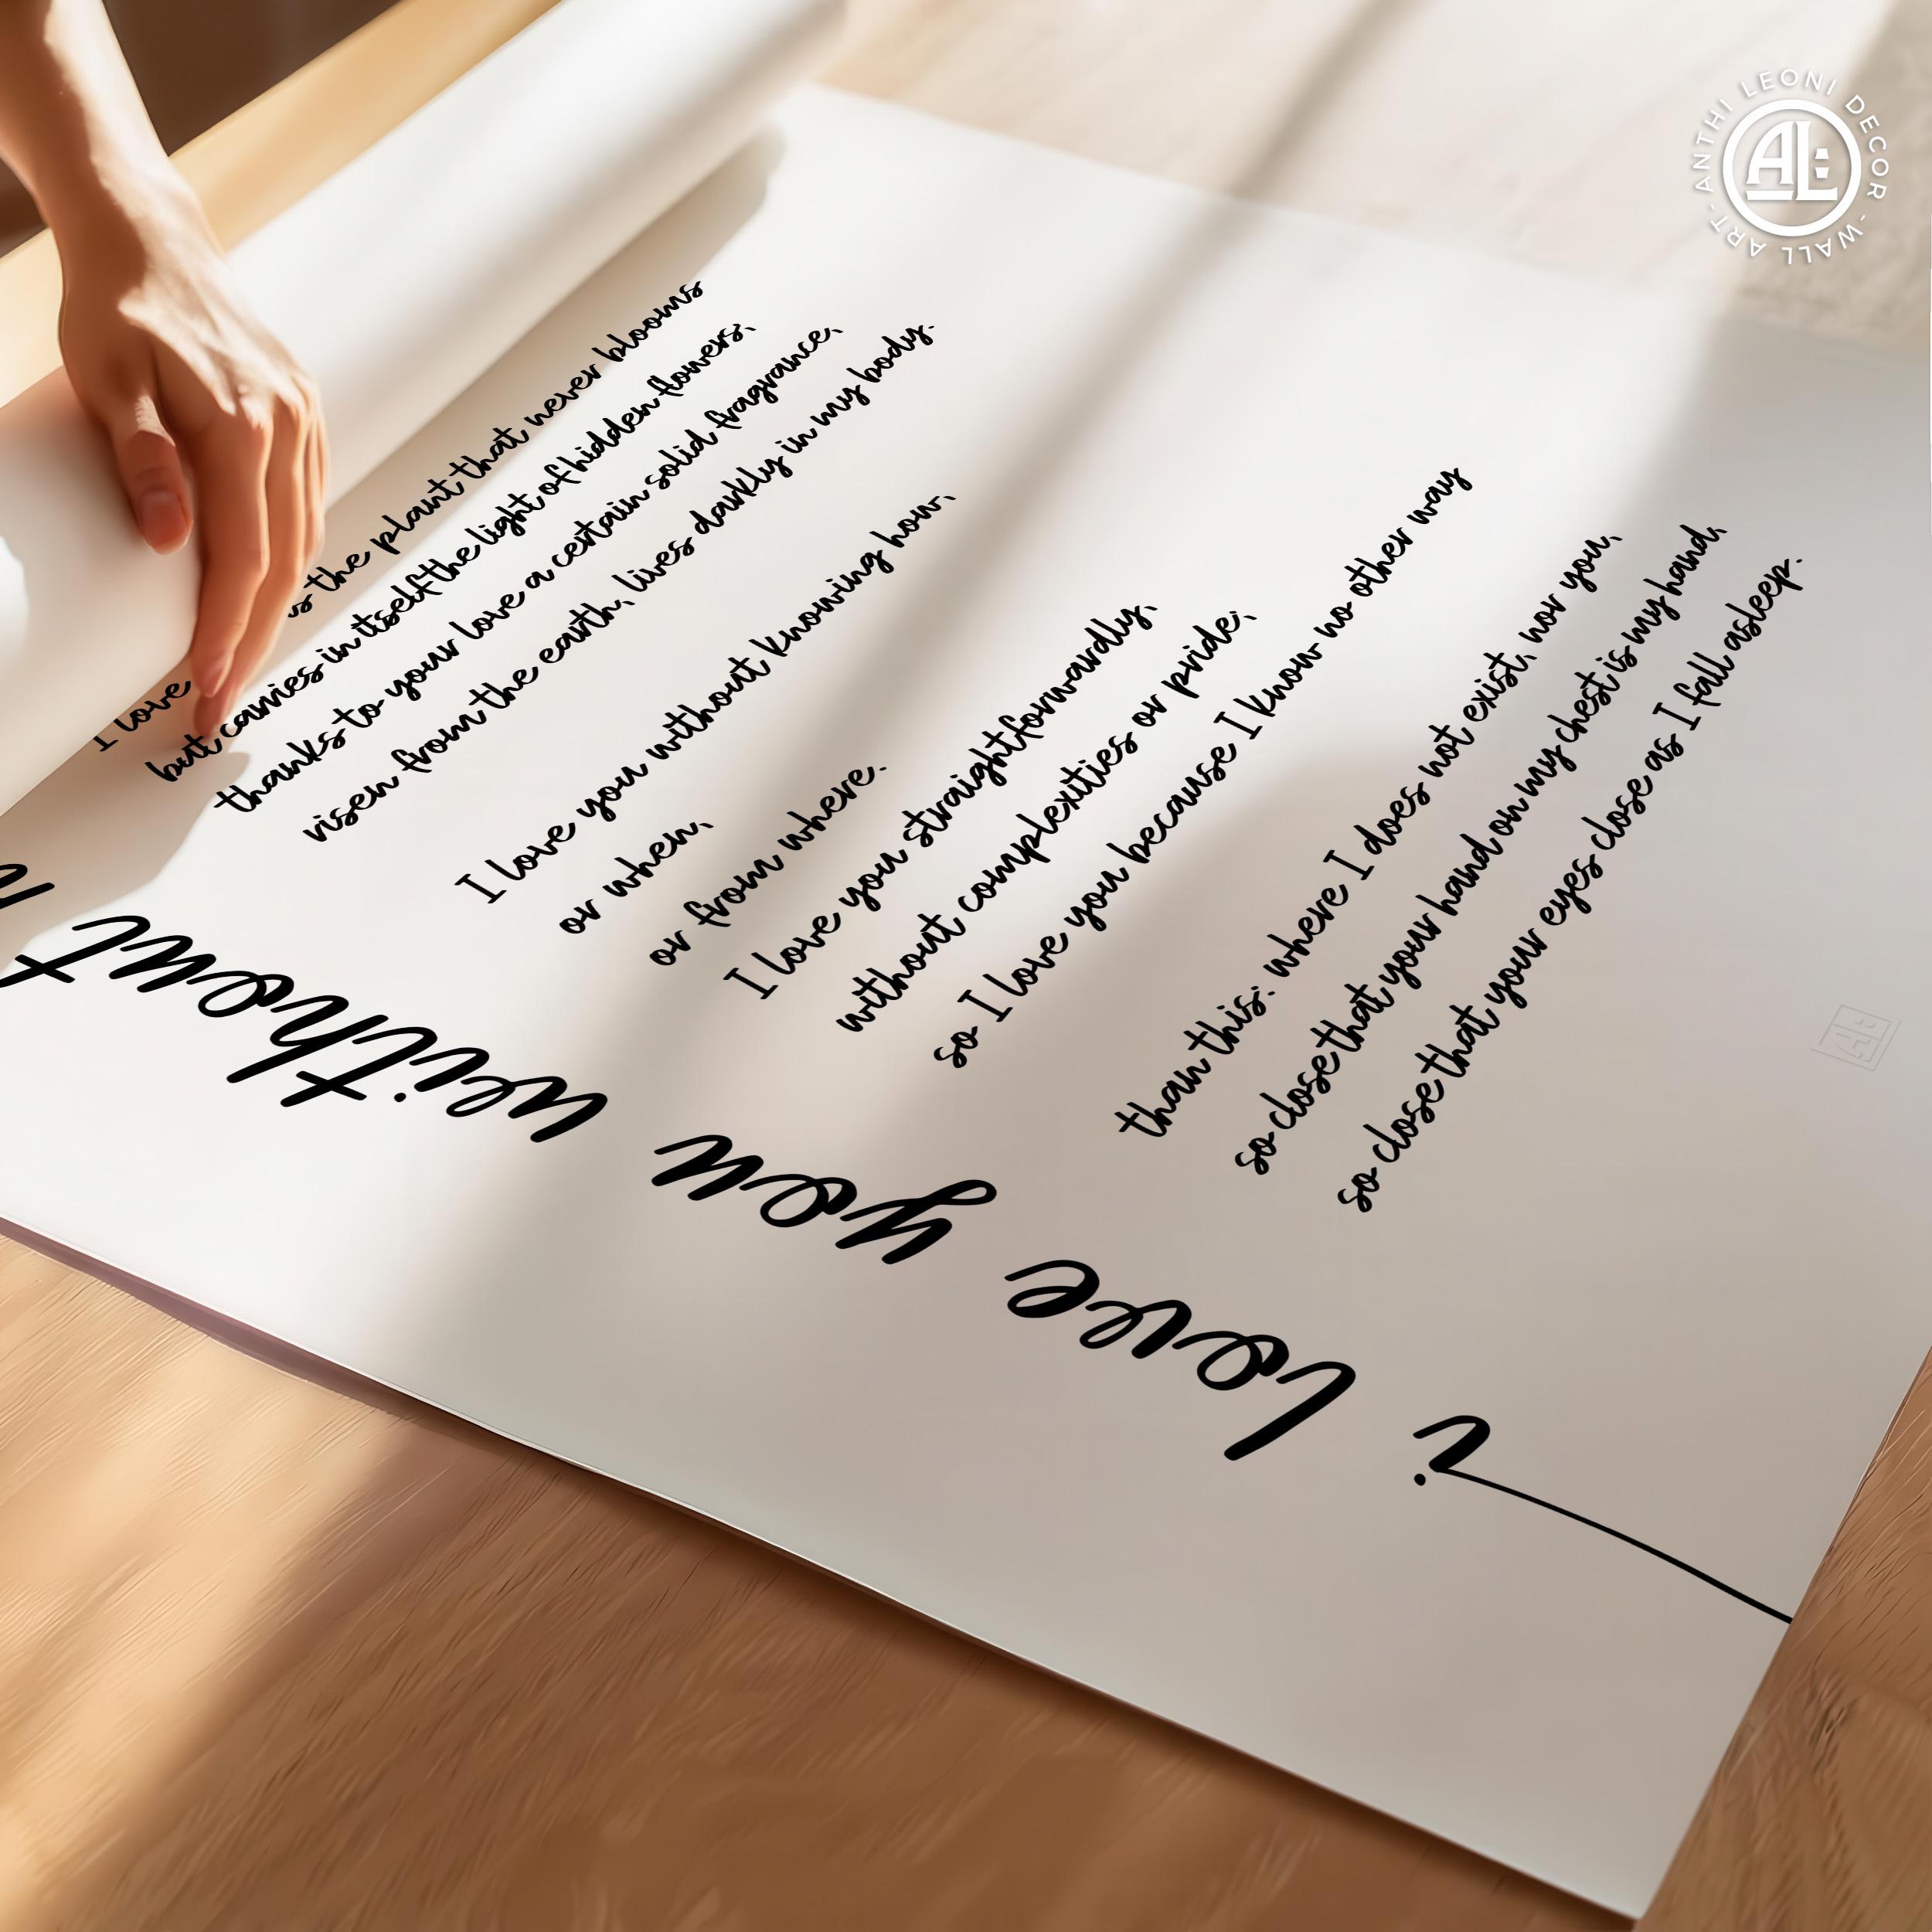 ANTHI LEONI DECOR - WALL ART -
AL
I love s the plant that never blooms
but carries in itself the light of hidden flowers;
thanks to your love a certain solid fragrance,
risen from the earth, lives darkly in my body.
I love you without knowing how,
or when,
or from where.
I love you straightforwardly,
without complexities or pride;
so I love you because I know no other way
than this: where I does not exist, nor you,
so close that your hand on my chest is my hand,
so close that your eyes close as I fall asleep.
i love you without